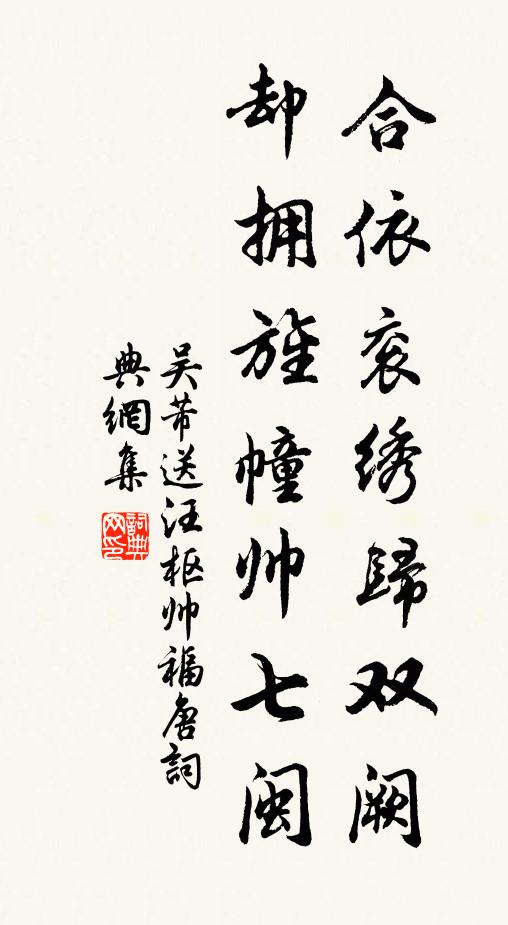 合依衮绣歸双阙
却拥旌幢帅七闽
吴芾送汪枢帅福唐詞
典網集
詞典网印